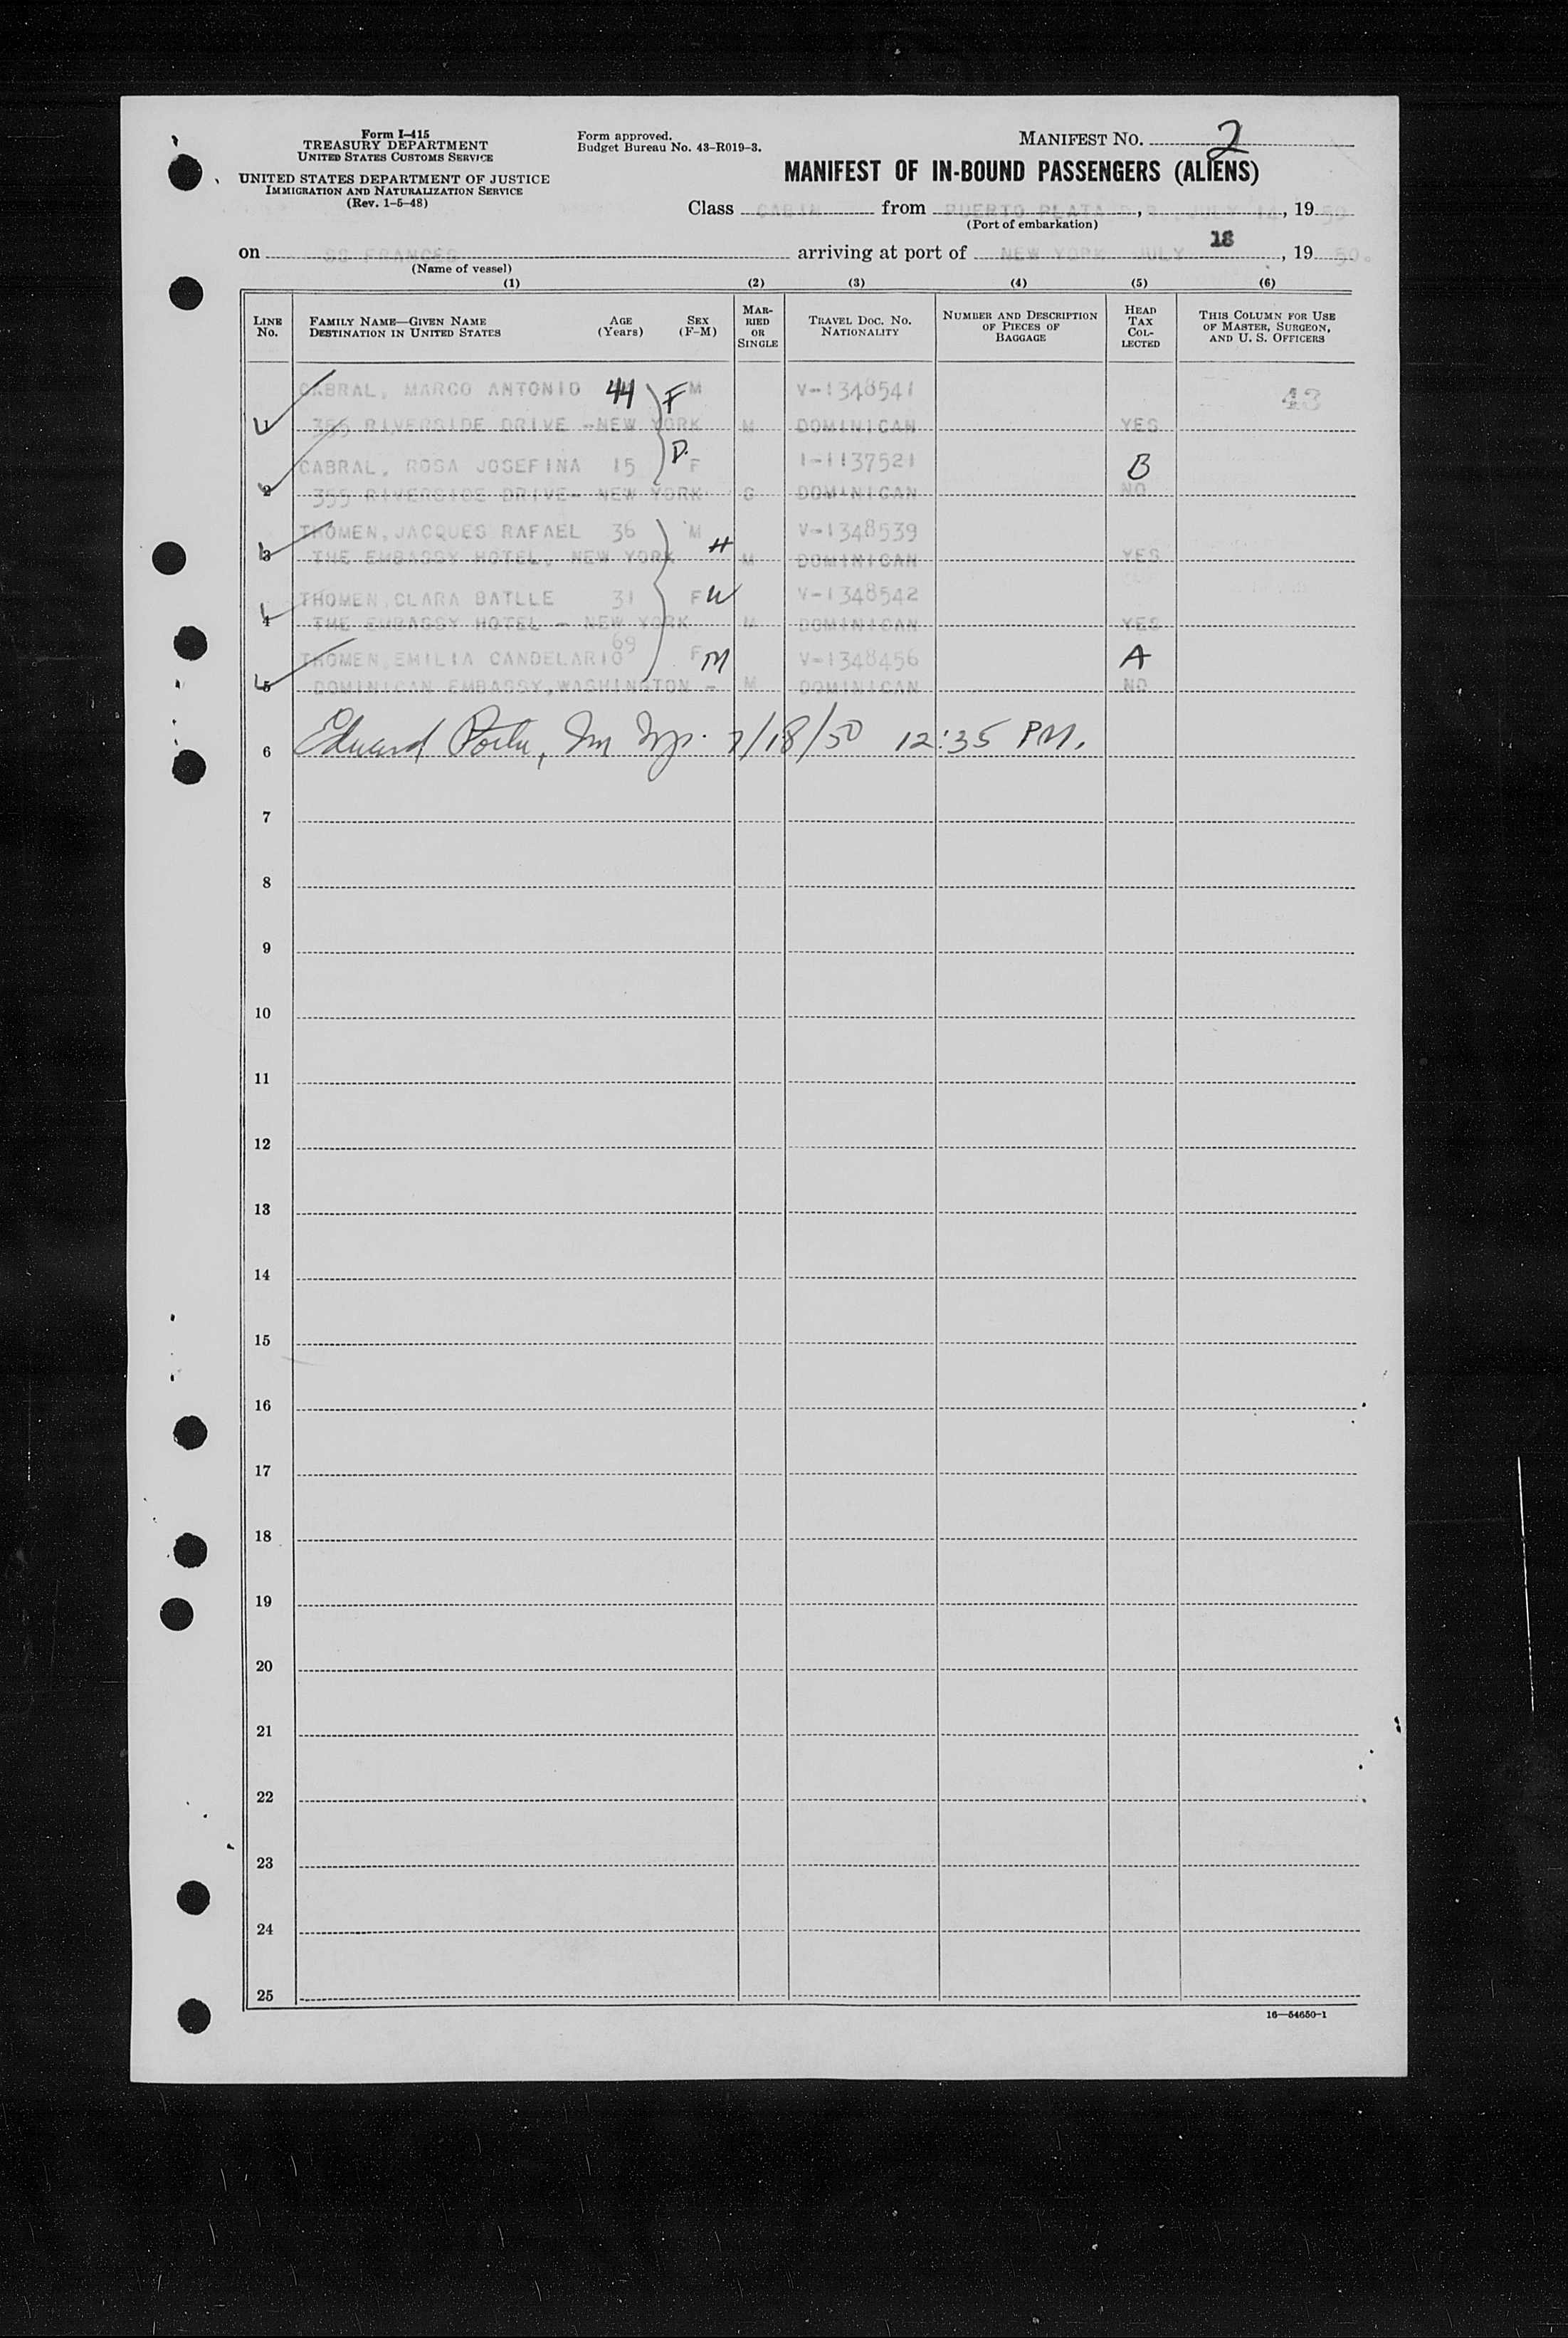 Form I-415
TREASURY DEPARTMENT
UNITED STATES CUSTOMS SERVICE
UNITED STATES DEPARTMENT OF JUSTICE
IMMIGRATION AND NATURALIZATION SERVICE
(Rev. 1-5-48)
Form approved.
Budget Bureau No. 43-R019-3.
MANIFEST NO. 2
MANIFEST OF IN-BOUND PASSENGERS (ALIENS)
Class CABIN from PUERTO PLATA D.R. JULY 14, 1950
(Port of embarkation)
on SS FRANCES arriving at port of NEW YORK JULY 18, 1950.
(Name of vessel)
(1) (2) (3) (4) (5) (6)
LINE No. FAMILY NAME—GIVEN NAME DESTINATION IN UNITED STATES AGE (Years) SEX (F-M) MARRIED OR SINGLE TRAVEL DOC. NO. NATIONALITY NUMBER AND DESCRIPTION OF PIECES OF BAGGAGE HEAD TAX COLLECTED THIS COLUMN FOR USE OF MASTER, SURGEON, AND U. S. OFFICERS
CABRAL, MARCO ANTONIO 44 F M V-1348541 43
1 355 RIVERSIDE DRIVE -NEW YORK M DOMINICAN YES
CABRAL, ROSA JOSEFINA 15 D. F 1-1137521 B
2 355 RIVERSIDE DRIVE- NEW YORK S DOMINICAN NO
THOMEN, JACQUES RAFAEL 36 M H V-1348539
3 THE EMBASSY HOTEL, NEW YORK M DOMINICAN YES
THOMEN, CLARA BATLLE 31 F W V-1348542
4 THE EMBASSY HOTEL - NEW YORK M DOMINICAN YES
THOMEN, EMILIA CANDELARIO 69 F M V-1348456 A
5 DOMINICAN EMBASSY, WASHINGTON - M DOMINICAN NO
6 Edward 7/18/50 12:35 PM.
7
8
9
10
11
12
13
14
15
16
17
18
19
20
21
22
23
24
25
16—54650-1